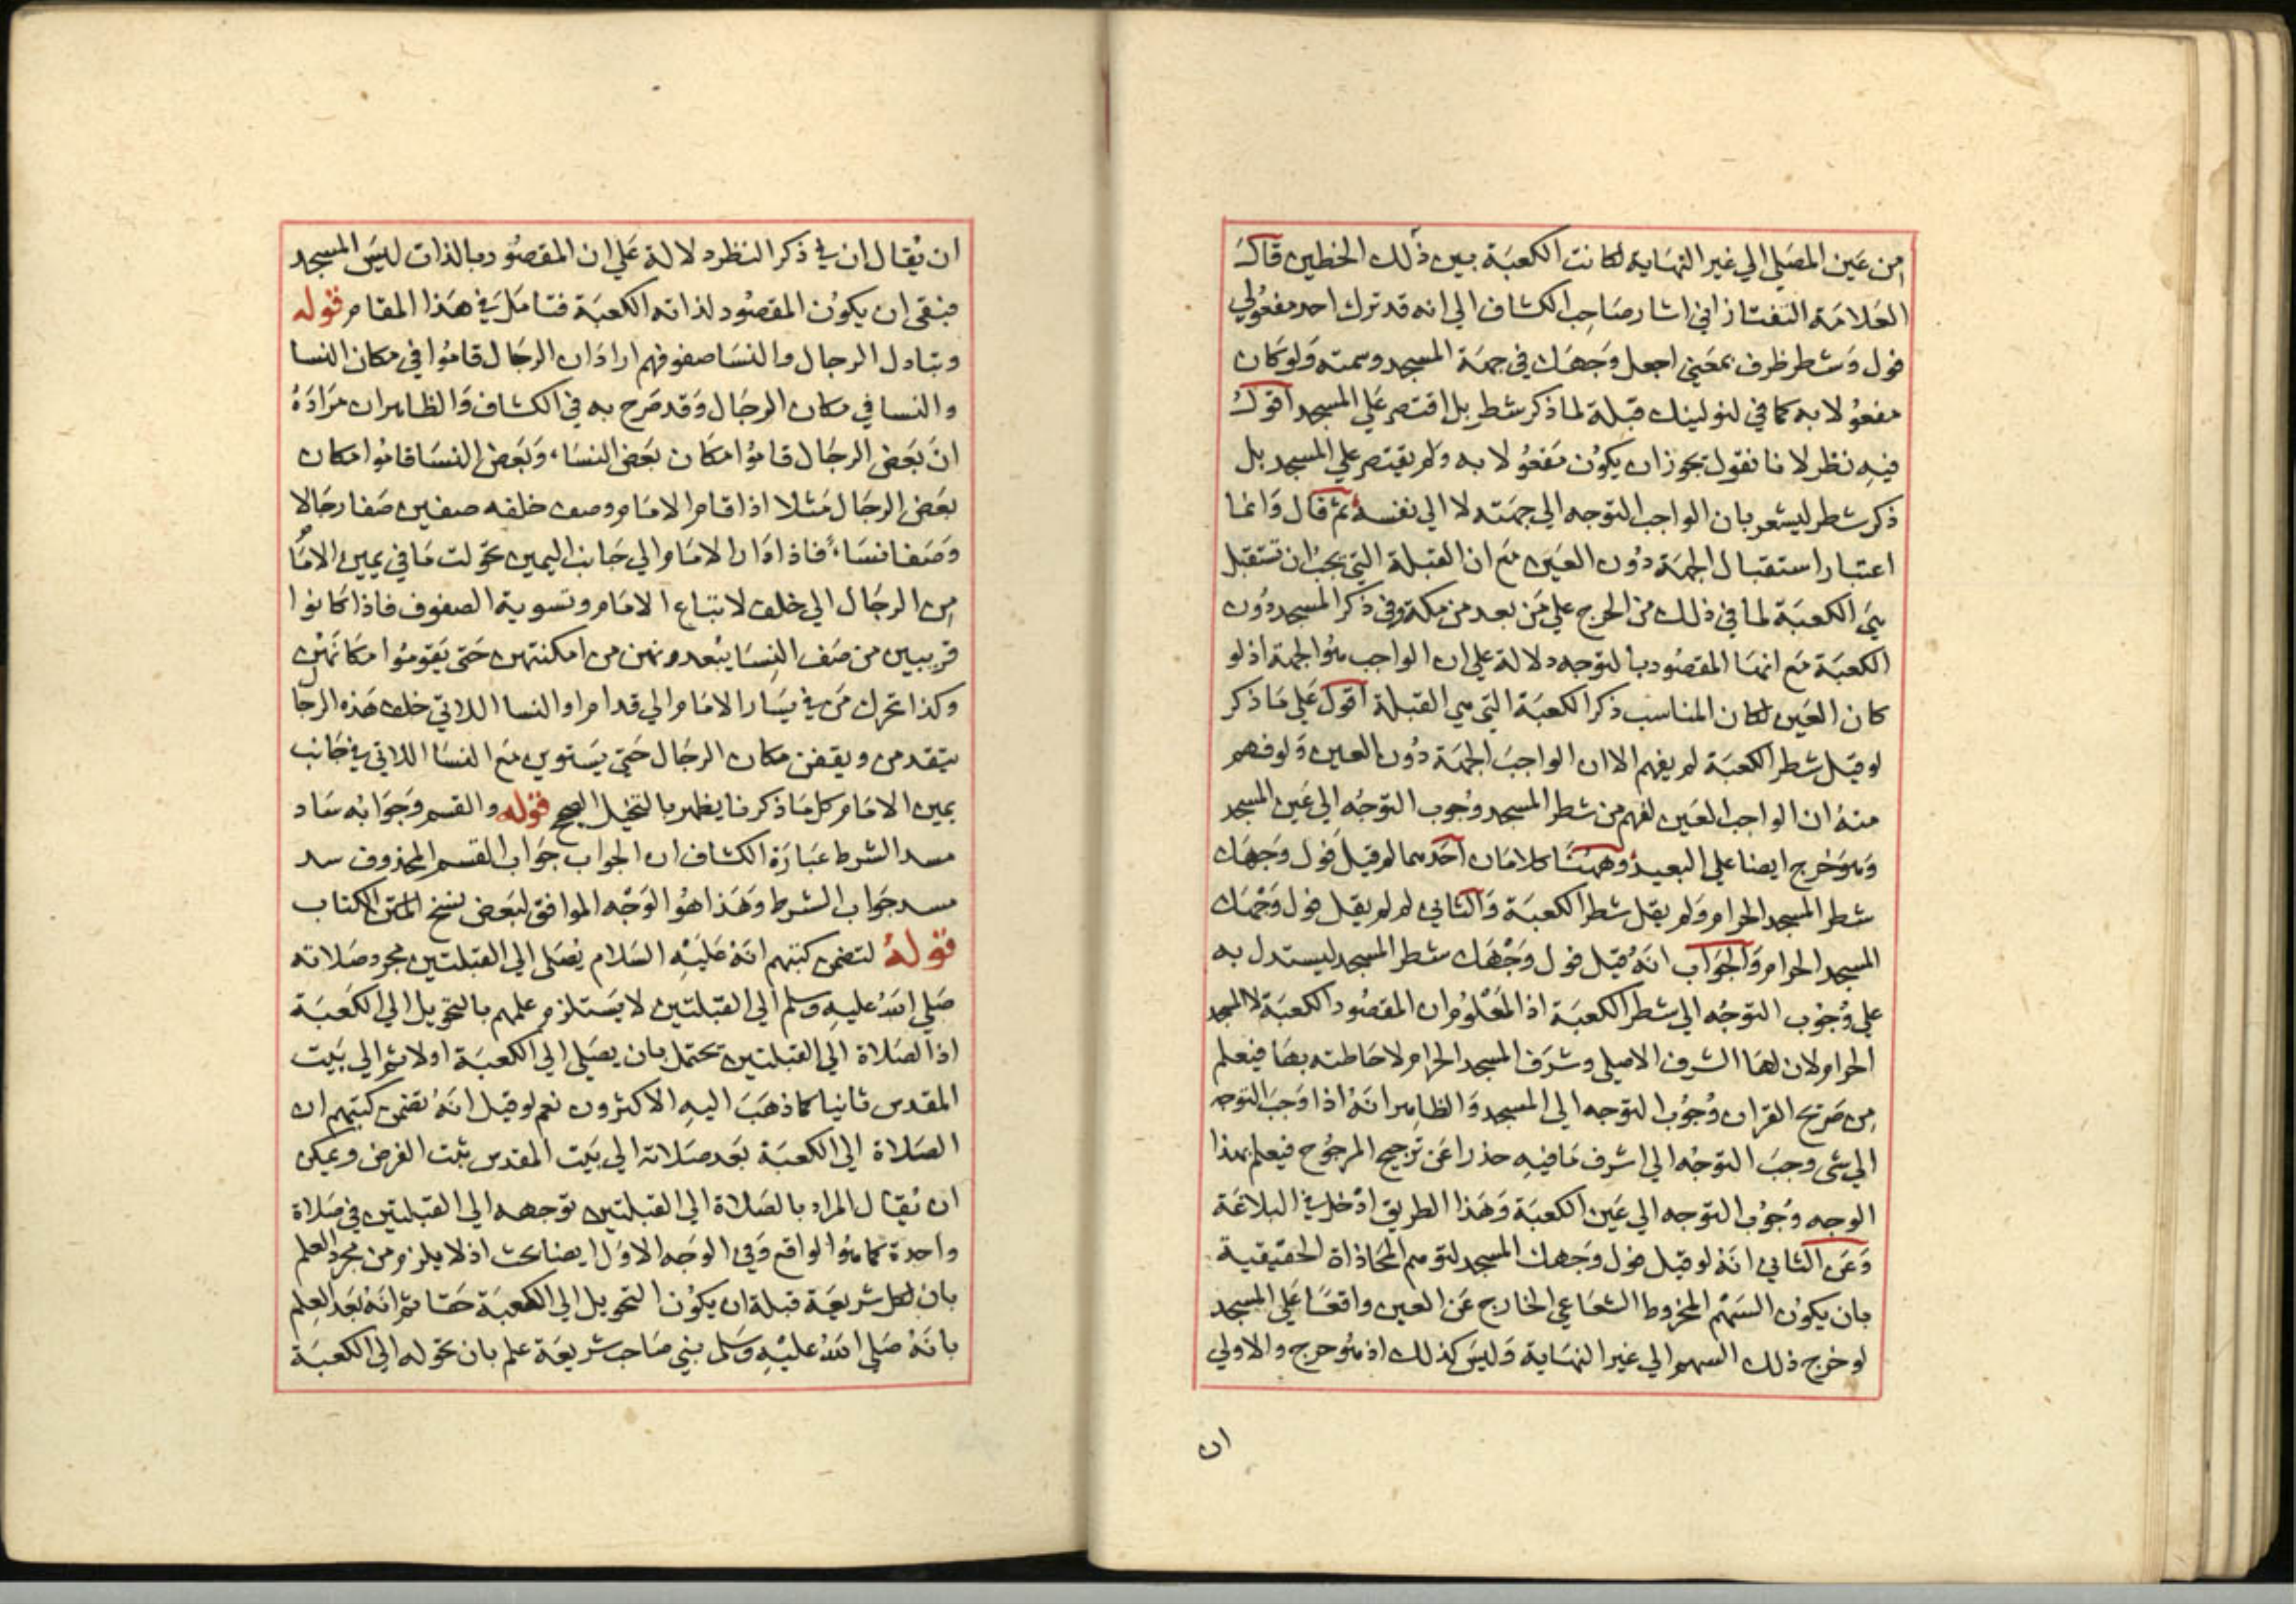 من عين المصلي الي غير النهاية لكانت الكعبة بين ذلك الخطين قال
العلامة التفتازاني اشار صاحب الكشاف الي انه قد ترك احد مفعولي
فول وشطر ظرف بمعني اجعل وجهك في جهة المسجد وسمته ولو كان
مفعولا به كما في لنولينك قبلة لما ذكر شطر بل اقتصر علي المسجد اقول
فيه نظر لانا نقول يجوز ان يكون مفعولا به ولم يقتصر علي المسجد بل
ذكر شطر ليشعر بان الواجب التوجه الي جهته لا الي نفسه ثم قال وانما
اعتبار استقبال الجهة دون العين مع ان القبلة التي يجب ان تستقبل
هي الكعبة لما في ذلك من الحرج علي من بعد من مكة وفي ذكر المسجد دون
الكعبة مع انها المقصود بالتوجه دلالة علي ان الواجب هو الجهة اذ لو
كان العين لكان المناسب ذكر الكعبة التي هي القبلة اقول علي ما ذكر
لو قيل شطر الكعبة لم يفهم الا ان الواجب الجهة دون العين ولو فهم
منه ان الواجب العين لفهم من شطر المسجد وجوب التوجه الي عين المسجد
وهو حرج ايضا علي البعيد وههنا كلامان احدهما لم قيل فول وجهك
شطر المسجد الحرام ولم يقل شطر الكعبة والثاني لم لم يقل فول وجهك
المسجد الحرام والجواب انه قيل فول وجهك شطر المسجد ليستدل به
علي وجوب التوجه الي شطر الكعبة اذ المعلوم ان المقصود الكعبة لا المسجد
الحرام لان لها الشرف الاصلي وشرف المسجد الحرام لاحاطته بها فيعلم
من صريح القران وجوب التوجه الي المسجد والظاهر انه اذا وجب التوجه
الي شي وجب التوجه الي اشرف ما فيه حذرا عن ترجيح المرجوح فيعلم بهذا
الوجه وجوب التوجه الي عين الكعبة وهذا الطريق ادخل في البلاغة
وعن الثاني انه لو قيل فول وجهك المسجد لتوهم المحاذاة الحقيقية
بان يكون السهم المخروط الشعاعي الخارج عن العين واقعا علي المسجد
لو خرج ذلك السهم الي غير النهاية وليس كذلك اذ هو حرج والاولي
ان
ان يقال ان في ذكر النظر دلالة علي ان المقصود بالذات ليس المسجد
فبقي ان يكون المقصود لذاته الكعبة فتامل في هذا المقام قوله
وتبادل الرجال والنسا صفوفهم اراد ان الرجال قاموا في مكان النسا
والنسا في مكان الرجال وقد صرح به في الكشاف والظاهر ان مراده
ان بعض الرجال قاموا مكان بعض النساء وبعض النسا قاموا مكان
بعض الرجال مثلا اذا قام الامام وصف خلفه صفين صفا رجالا
وصفا نساء فاذا دار الامام الي جانب اليمين تحولت ما في يمين الامام
من الرجال الي خلف لاتباع الامام وتسوية الصفوف فاذا كانوا
قريبين من صف النسا يبعدونهن من امكنتهن حتي يقوموا مكانهن
وكذا تحرك من في يسار الامام الي قدام او النسا اللاتي خلف هذه الرجا
يتقدمن ويقفن مكان الرجال حتي يستوين مع النسا اللاتي في جانب
يمين الامام كل ما ذكرنا يظهر بالتخيل الصحيح قوله والقسم وجوابه ساد
مسد الشرط عبارة الكشاف ان الجواب جواب القسم المحذوف سد
مسد جواب الشرط وهذا هو الوجه الموافق لبعض نسخ المتن الكتاب
قوله لتضمن كتبهم انه عليه السلام يصلي الي القبلتين مجرد صلاته
صلي الله عليه وسلم الي القبلتين لا يستلزم علمهم بالتحويل الي الكعبة
اذ الصلاة الي القبلتين تحتمل بان يصلي الي الكعبة اولا ثم الي بيت
المقدس ثانيا كما ذهب اليه الاكثرون نعم لو قيل انه تضمن كتبهم ان
الصلاة الي الكعبة بعد صلاته الي بيت المقدس ثبت الغرض ويمكن
ان يقال المراد بالصلاة الي القبلتين توجهه الي القبلتين في صلاة
واحدة كما هو الواقع وفي الوجه الاول ايضا بحث اذ لا يلزم من مجرد العلم
بان لكل شريعة قبلة ان يكون التحويل الي الكعبة حقا ثم انه بعد العلم
بانه صلي الله عليه وسلم نبي صاحب شريعة علم بان تحوله الي الكعبة